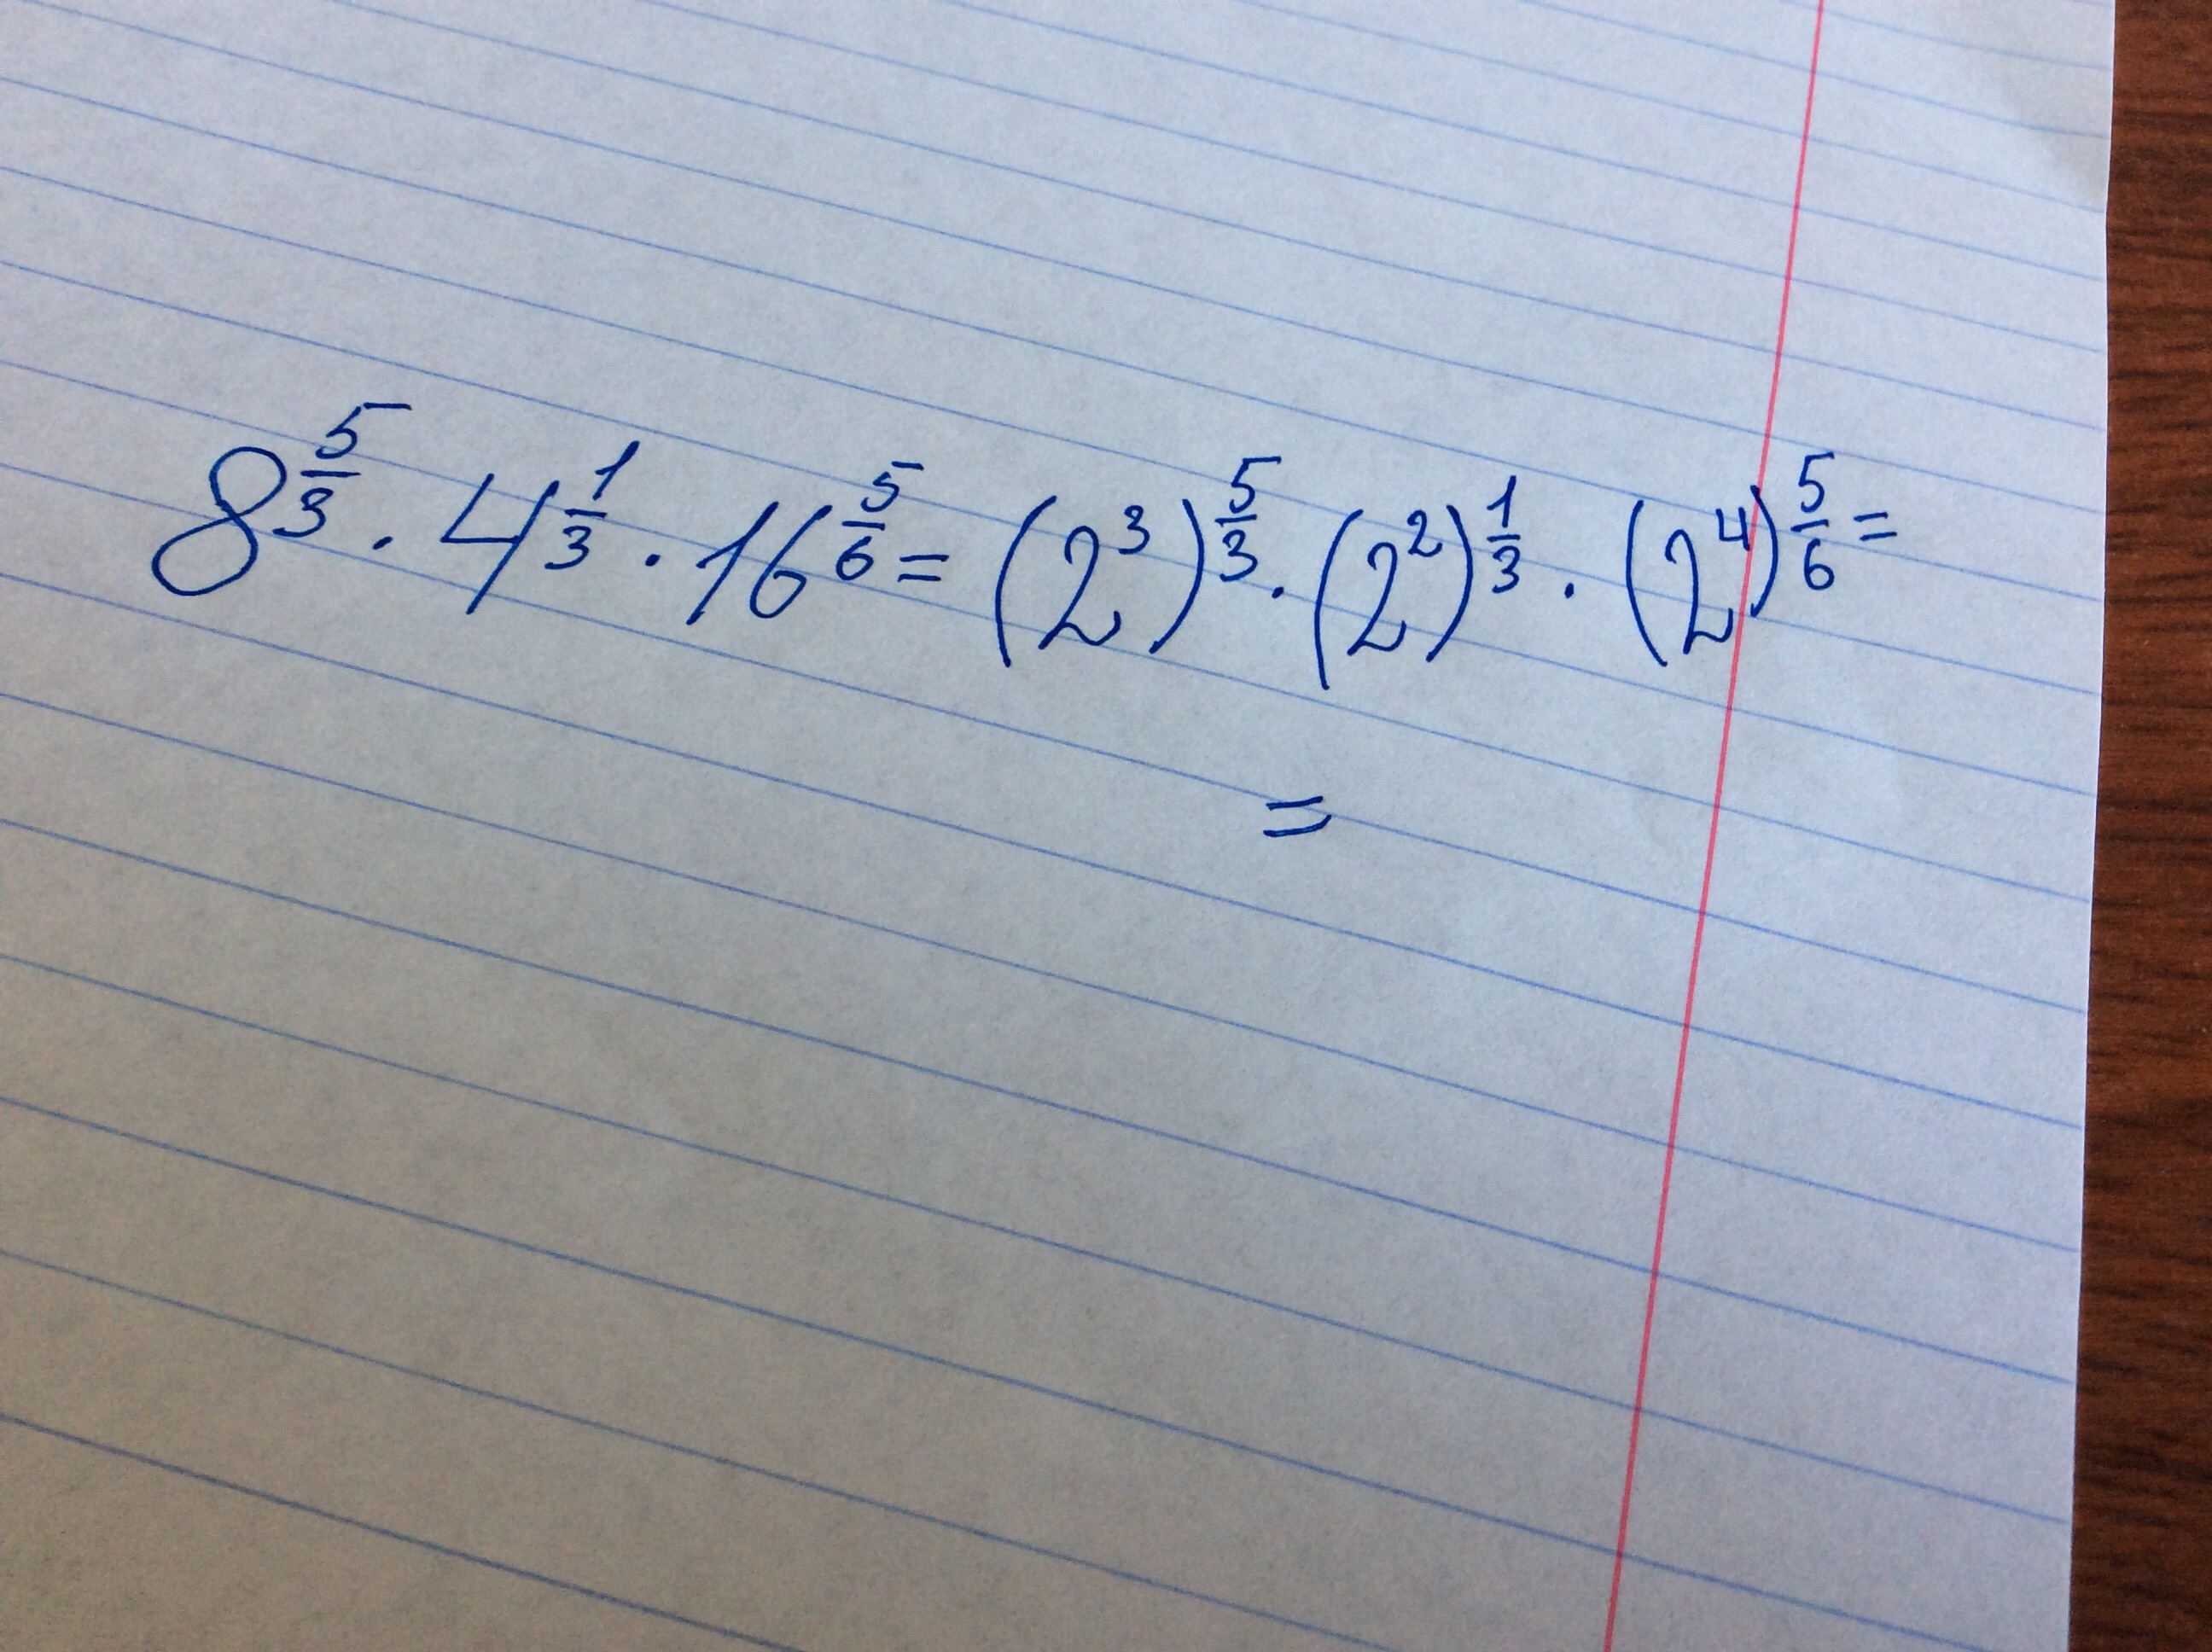 8^{\frac{5}{3}} · 4^{\frac{1}{3}} · 16^{\frac{5}{6}} = (2^3)^{\frac{5}{3}} · (2^2)^{\frac{1}{3}} · (2^4)^{\frac{5}{6}} =
=